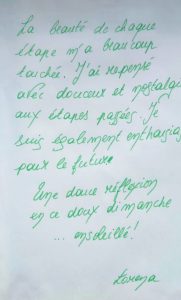 La beauté de chaque
étape m'a beaucoup
touchée. J'ai repensé
avec douceur et nostalgie
aux étapes passées. Je
suis également enthousiaste
pour le future
Une douce réflexion
en ce doux dimanche
... ensoleillé!
Lorena